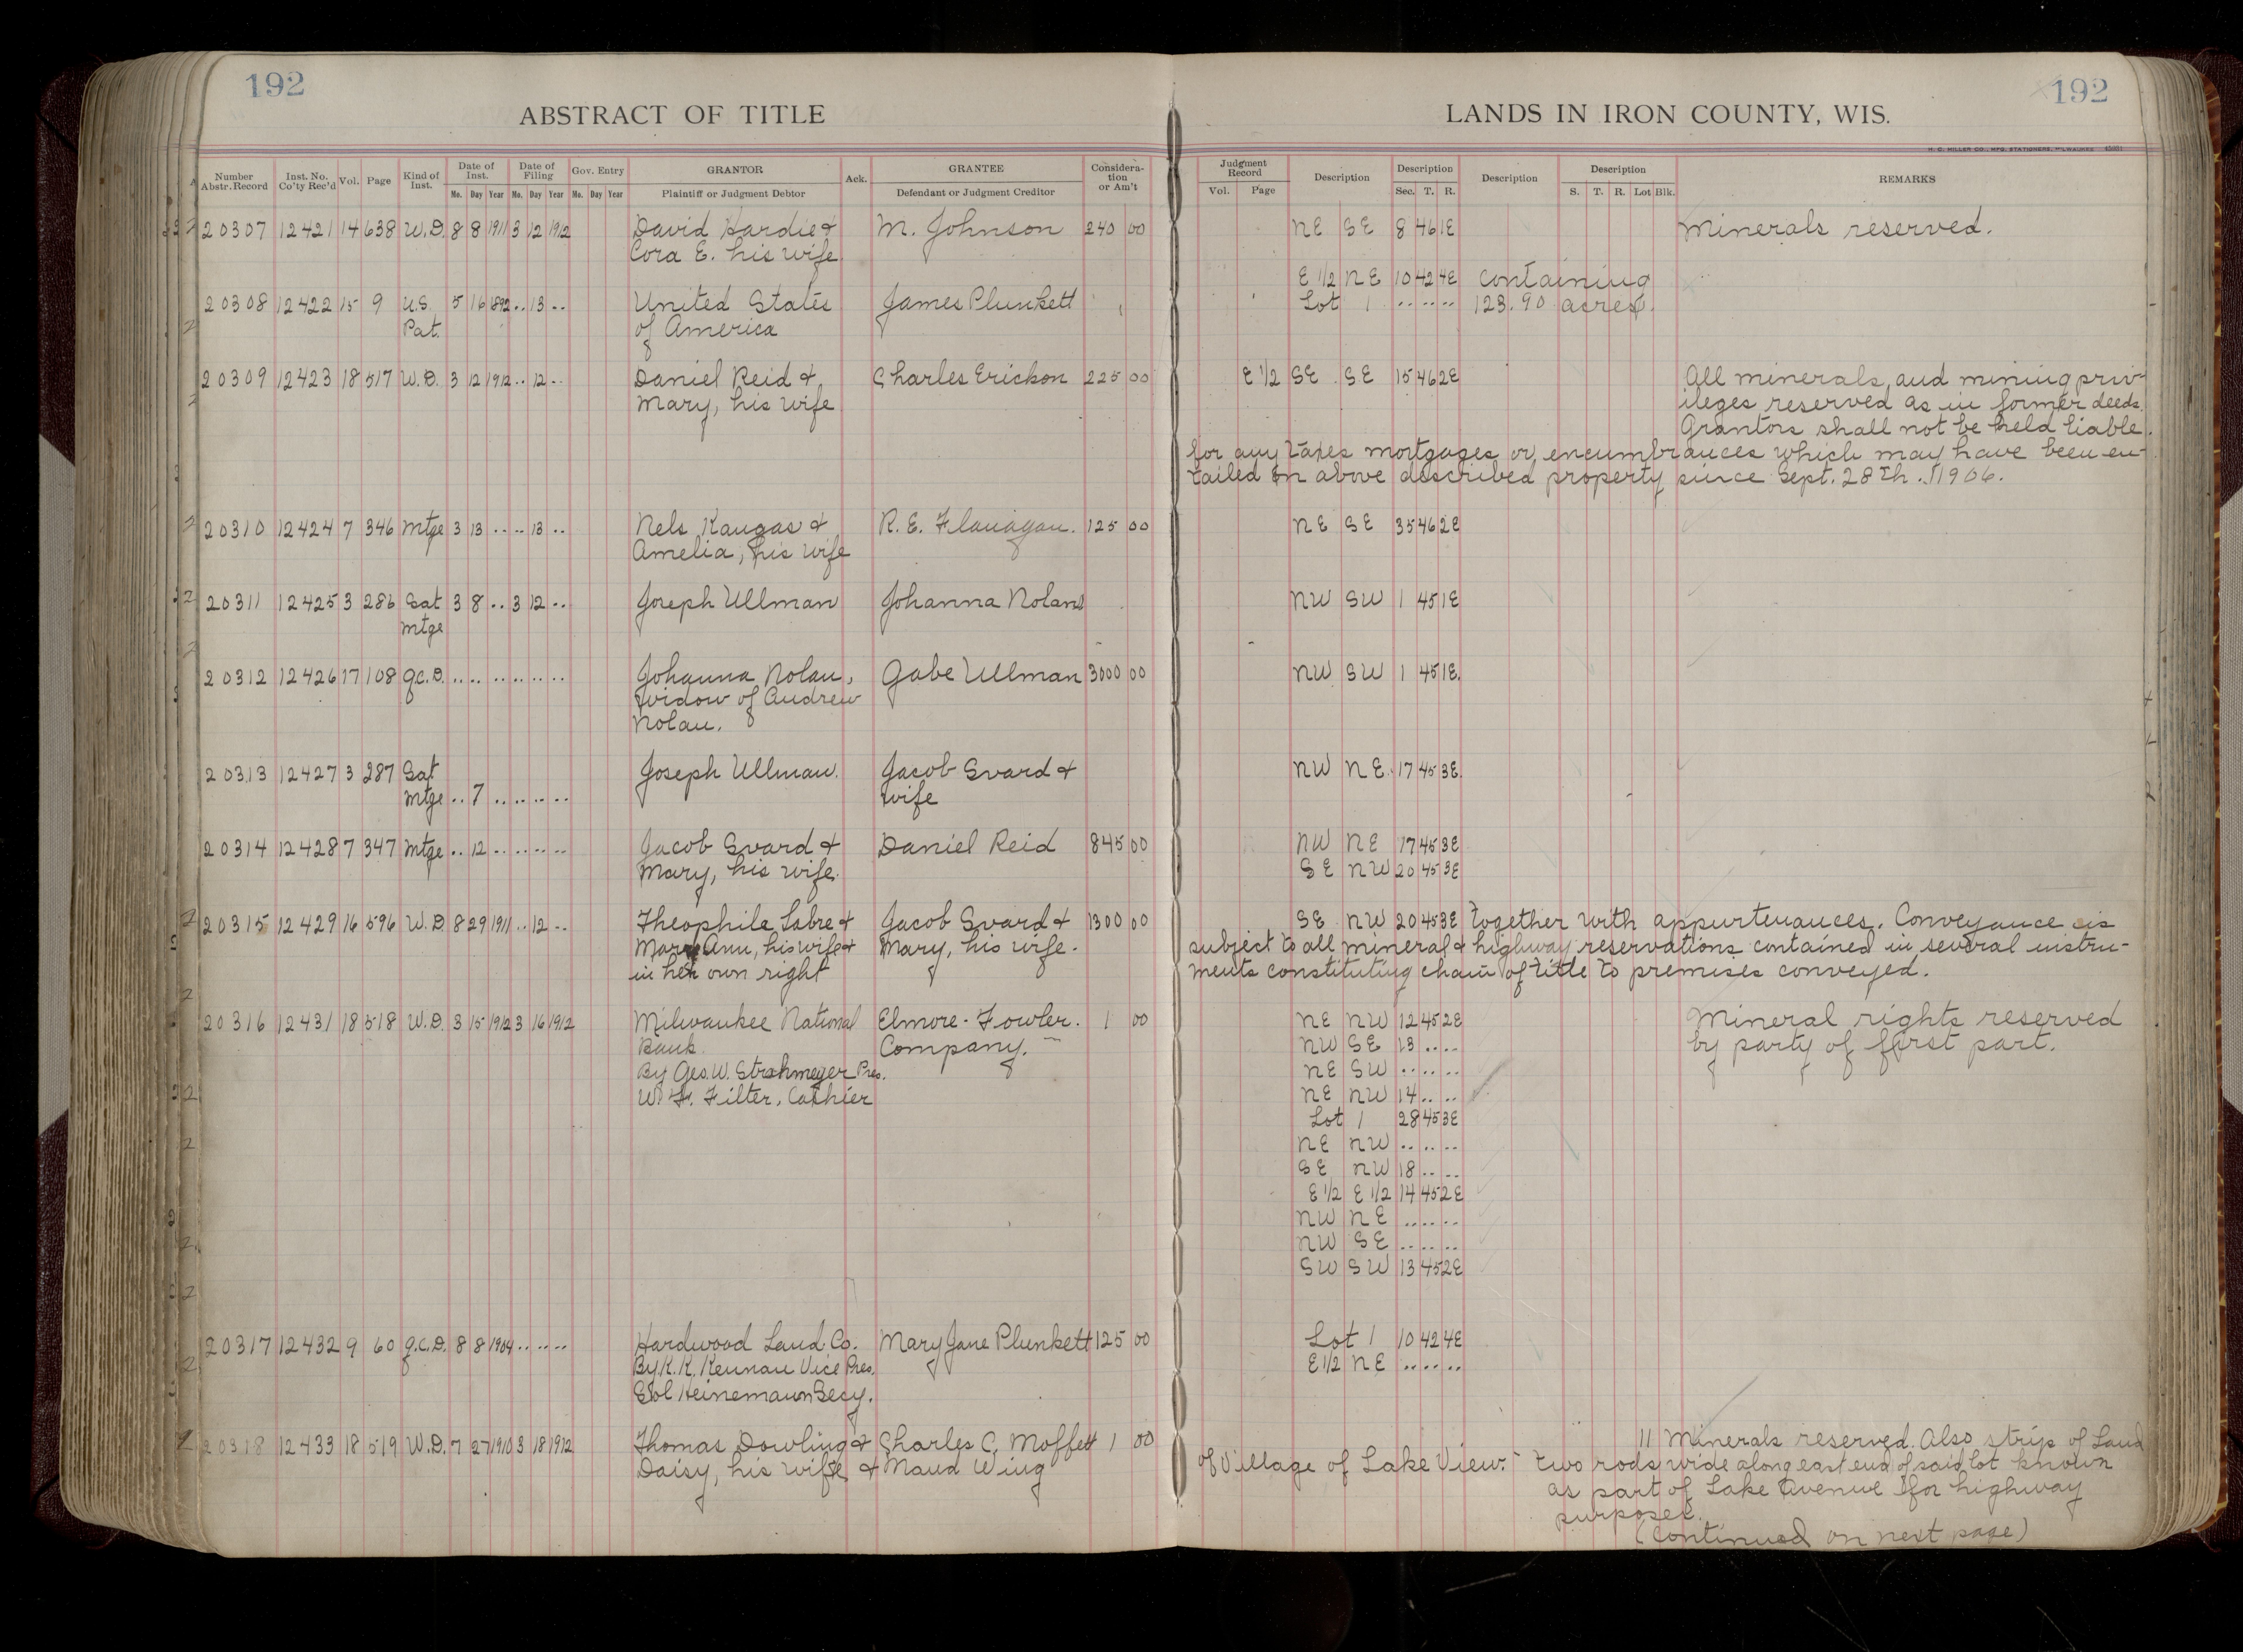 192
192
ABSTRACT OF TITLE
LANDS IN IRON COUNTY, WIS.
H. C. MILLER CO., MFG. STATIONERS, MILWAUKEE
Number Abstr. Record Inst. No. Co'ty Rec'd Vol. Page Kind of Inst. Date of Inst. Mo. Day Year Date of Filing Mo. Day Year Gov. Entry Mo. Day Year GRANTOR Plaintiff or Judgment Debtor Ack. GRANTEE Defendant or Judgment Creditor Considera- tion or Am't
Judgment Record Vol. Page Description Description Sec. T. R. Description Description S. T. R. Lot Blk. REMARKS
20307 12421 14 638 W.D. 8 8 1911 3 12 1912 David Hardie & M. Johnson 240 00 NE SE 8 46 1E Minerals reserved.
Cora E. his wife
E 1/2 NE 10 42 4E containing
20308 12422 15 9 U.S. 5 16 1892 .. 13 .. United States James Plunkett Lot 1 .. .. .. 123.90 acres.
Pat. of America
20309 12423 18 517 W.D. 3 12 1912 .. 12 .. Daniel Reid & Charles Erickson 225 00 E 1/2 SE SE 15 46 2E All minerals, and mining priv-
Mary, his wife ileges reserved as in former deeds.
Grantors shall not be held liable
for any taxes mortgages or encumbrances which may have been en-
tailed on above described property since Sept. 28th. 1906.
20310 12424 7 346 Mtge 3 13 .. .. 13 .. Nels Kangas & R. E. Flanagan. 125 00 NE SE 35 46 2E
Amelia, his wife
20311 12425 3 286 Sat 3 8 .. 3 12 .. Joseph Ullman Johanna Nolan NW SW 1 45 1E
Mtge
20312 12426 17 108 Q.C.D. .. .. .. .. .. .. Johanna Nolan, Gabe Ullman 3000 00 NW SW 1 45 1E.
widow of Andrew
Nolan.
20313 12427 3 287 Sat Joseph Ullman. Jacob Svard & NW NE 17 45 3E.
Mtge .. 7 .. .. .. .. wife
20314 12428 7 347 Mtge .. 12 .. .. .. .. Jacob Svard & Daniel Reid 845 00 NW NE 17 45 3E
Mary, his wife. SE NW 20 45 3E
20315 12429 16 596 W.D. 8 29 1911 .. 12 .. Theophile Sabre & Jacob Svard & 1300 00 SE NW 20 45 3E together with appurtenances. Conveyance is
Mary Ann, his wife & Mary, his wife. subject to all mineral & highway reservations contained in several instru-
in her own right ments constituting chain of title to premises conveyed.
20316 12431 18 518 W.D. 3 15 1912 3 16 1912 Milwaukee National Elmore-Fowler. 1 00 NE NW 12 45 2E Mineral rights reserved
Bank Company. NW SE 13 .. .. by party of first part.
By Geo. W. Strohmeyer Pres. NE SW .. .. ..
W. F. Filter, Cashier NE NW 14 .. ..
Lot 1 28 45 3E
NE NW .. .. ..
SE NW 18 .. ..
E 1/2 E 1/2 14 45 2E
NW NE .. .. ..
NW SE .. .. ..
SW SW 13 45 2E
20317 12432 9 60 Q.C.D. 8 8 1904 .. .. .. Hardwood Land Co. Mary Jane Plunkett 125 00 Lot 1 10 42 4E
By K. K. Kennan Vice Pres. E 1/2 NE .. .. ..
Sol Heinemann Secy.
20318 12433 18 519 W.D. 7 27 1910 3 18 1912 Thomas Dowling & Charles C. Moffett 1 00 11 Minerals reserved. Also strip of land
Daisy, his wife, & Maud Wing of Village of Lake View. two rods wide along east end of said lot known
as part of Lake Avenue for highway
purposes.
(Continued on next page)